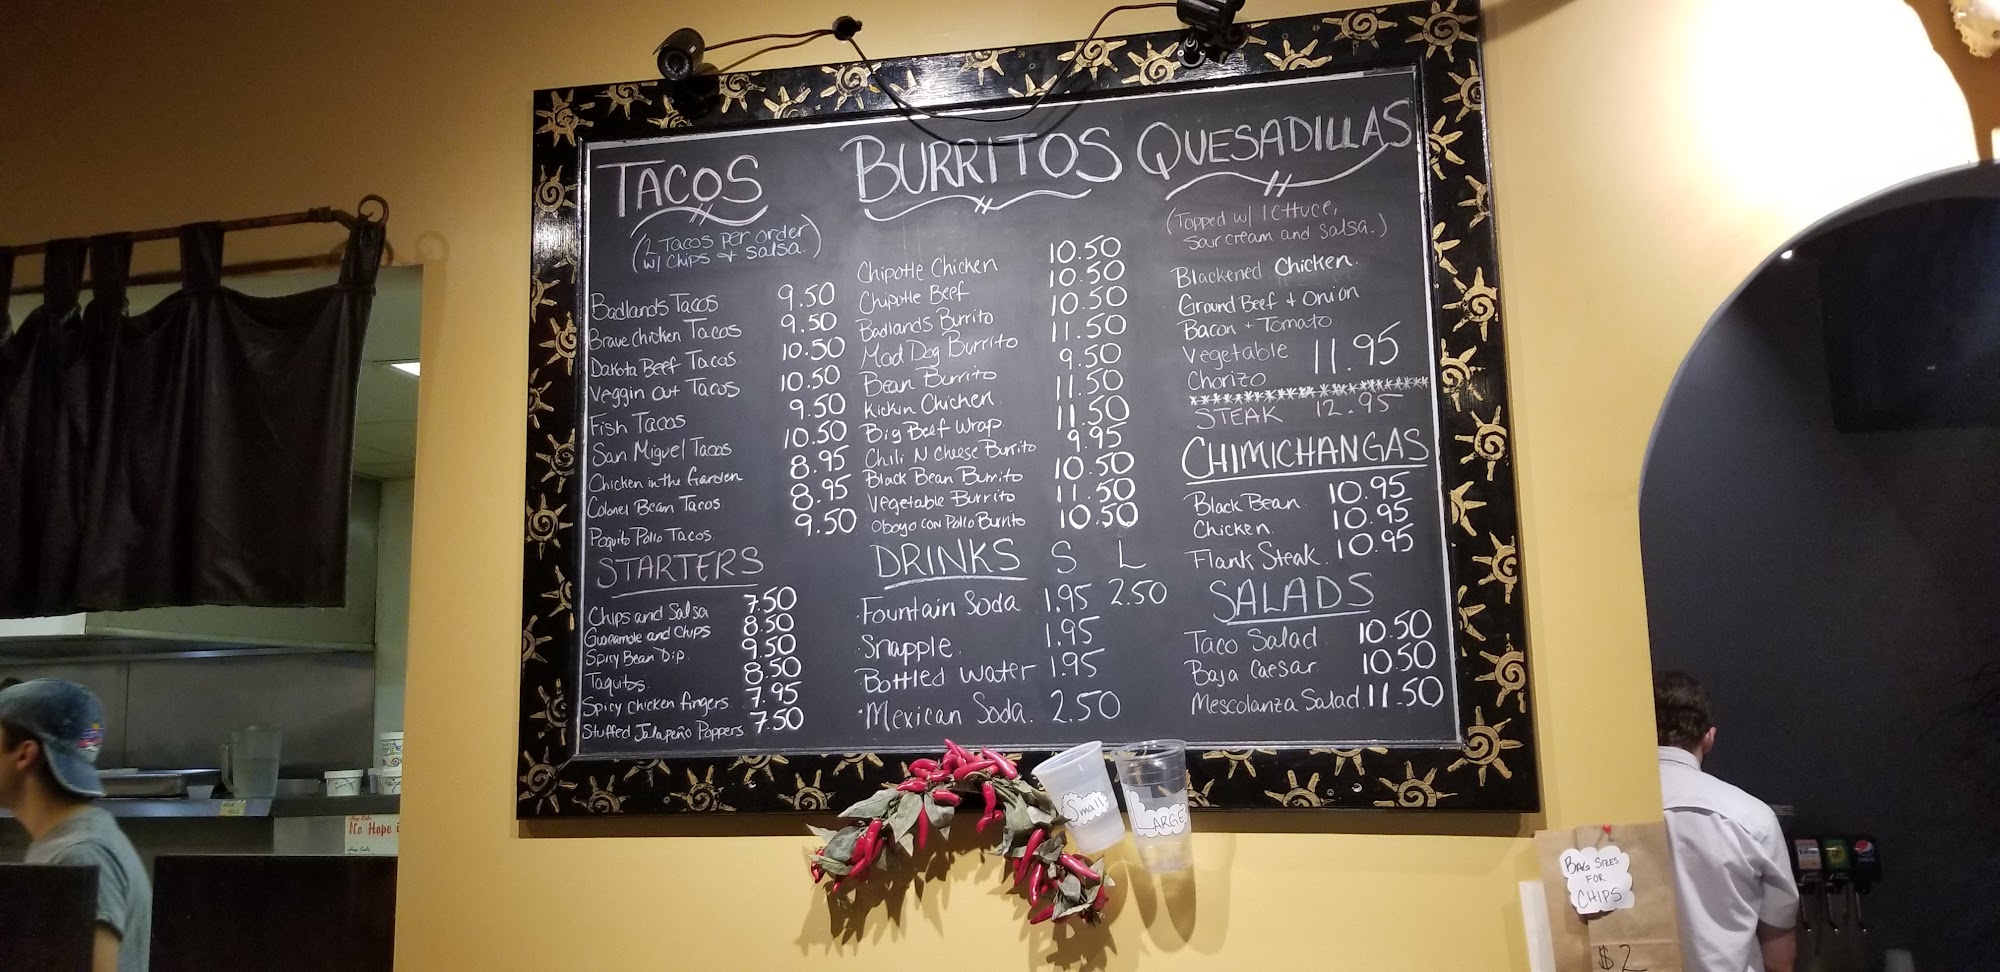 TACOS
(2 Tacos per order
w/ Chips & Salsa.)
Badlands Tacos 9.50
Brave Chicken Tacos 9.50
Dakota Beef Tacos 10.50
Veggin out Tacos 10.50
Fish Tacos 9.50
San Miguel Tacos 10.50
Chicken in the Garden 8.95
Colonel Bean Tacos 8.95
Poquito Pollo Tacos 9.50
STARTERS
Chips and Salsa 7.50
Guacamole and Chips 8.50
Spicy Bean Dip 9.50
Taquitos 8.50
Spicy Chicken fingers 7.95
Stuffed Jalapeño Poppers 7.50
BURRITOS
Chipotle Chicken 10.50
Chipotle Beef 10.50
Badlands Burrito 10.50
Mad Dog Burrito 11.50
Bean Burrito 9.50
Kickin Chicken 11.50
Big Beef Wrap 11.50
Chili N Cheese Burrito 9.95
Black Bean Burrito 10.50
Vegetable Burrito 11.50
Oboyo con Pollo Burrito 10.50
DRINKS S L
Fountain Soda 1.95 2.50
Snapple 1.95
Bottled Water 1.95
Mexican Soda. 2.50
QUESADILLAS
(Topped w/ lettuce,
sour cream and salsa.)
Blackened Chicken
Ground Beef + Onion
Bacon + Tomato
Vegetable 11.95
Chorizo
STEAK 12.95
CHIMICHANGAS
Black Bean 10.95
Chicken 10.95
Flank Steak 10.95
SALADS
Taco Salad 10.50
Baja Caesar 10.50
Mescolanza Salad 11.50
Small
LARGE
BAG SIZES
FOR
CHIPS
$2